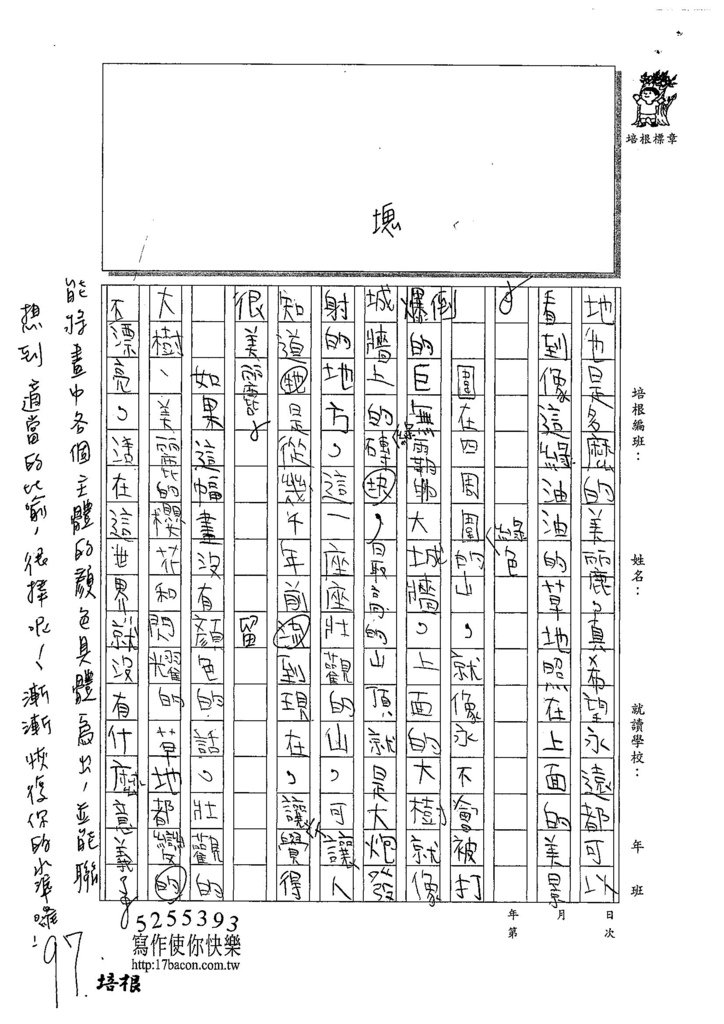 培根標章
塊
培根編班：
姓名：
就讀學校：
年　班
年　月　日
第　次
地也是多麼的美麗，真希望永遠都可以
看到像這綠油油的草地照在上面的美景
。
圍在四周圍的山，就像永不會被打
綠色
倒
爆的巨無霸的大城牆，上面的大樹就像
綠
城牆上的磚块，最高的山頂就是大炮發
射的地方，這一座座壯觀的山，可讓人
知道地是從幾千年前流到現在，讓覺得
人
留
很美麗。
如果這幅畫沒有顏色的話，壯觀的
大樹、美麗的櫻花和閃耀的草地都變的
不漂亮，活在這世界就沒有什麼意義了。
能將畫中各個主體的顏色具體寫出，並能聯
想到適當的比喻，很棒呢！漸漸恢復你的水準囉！
97.
5255393
寫作使你快樂
http:/17bacon.com.tw
培根